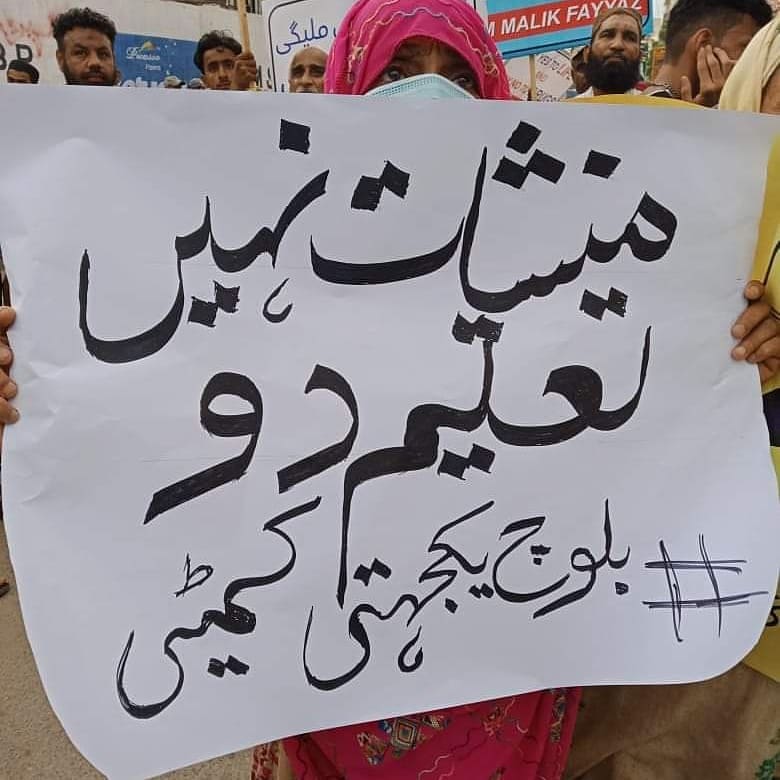 M MALIK FAYYAZ
ملیگی
منشیات نہیں
تعلیم دو
# بلوچ یکجہتی کمیٹی